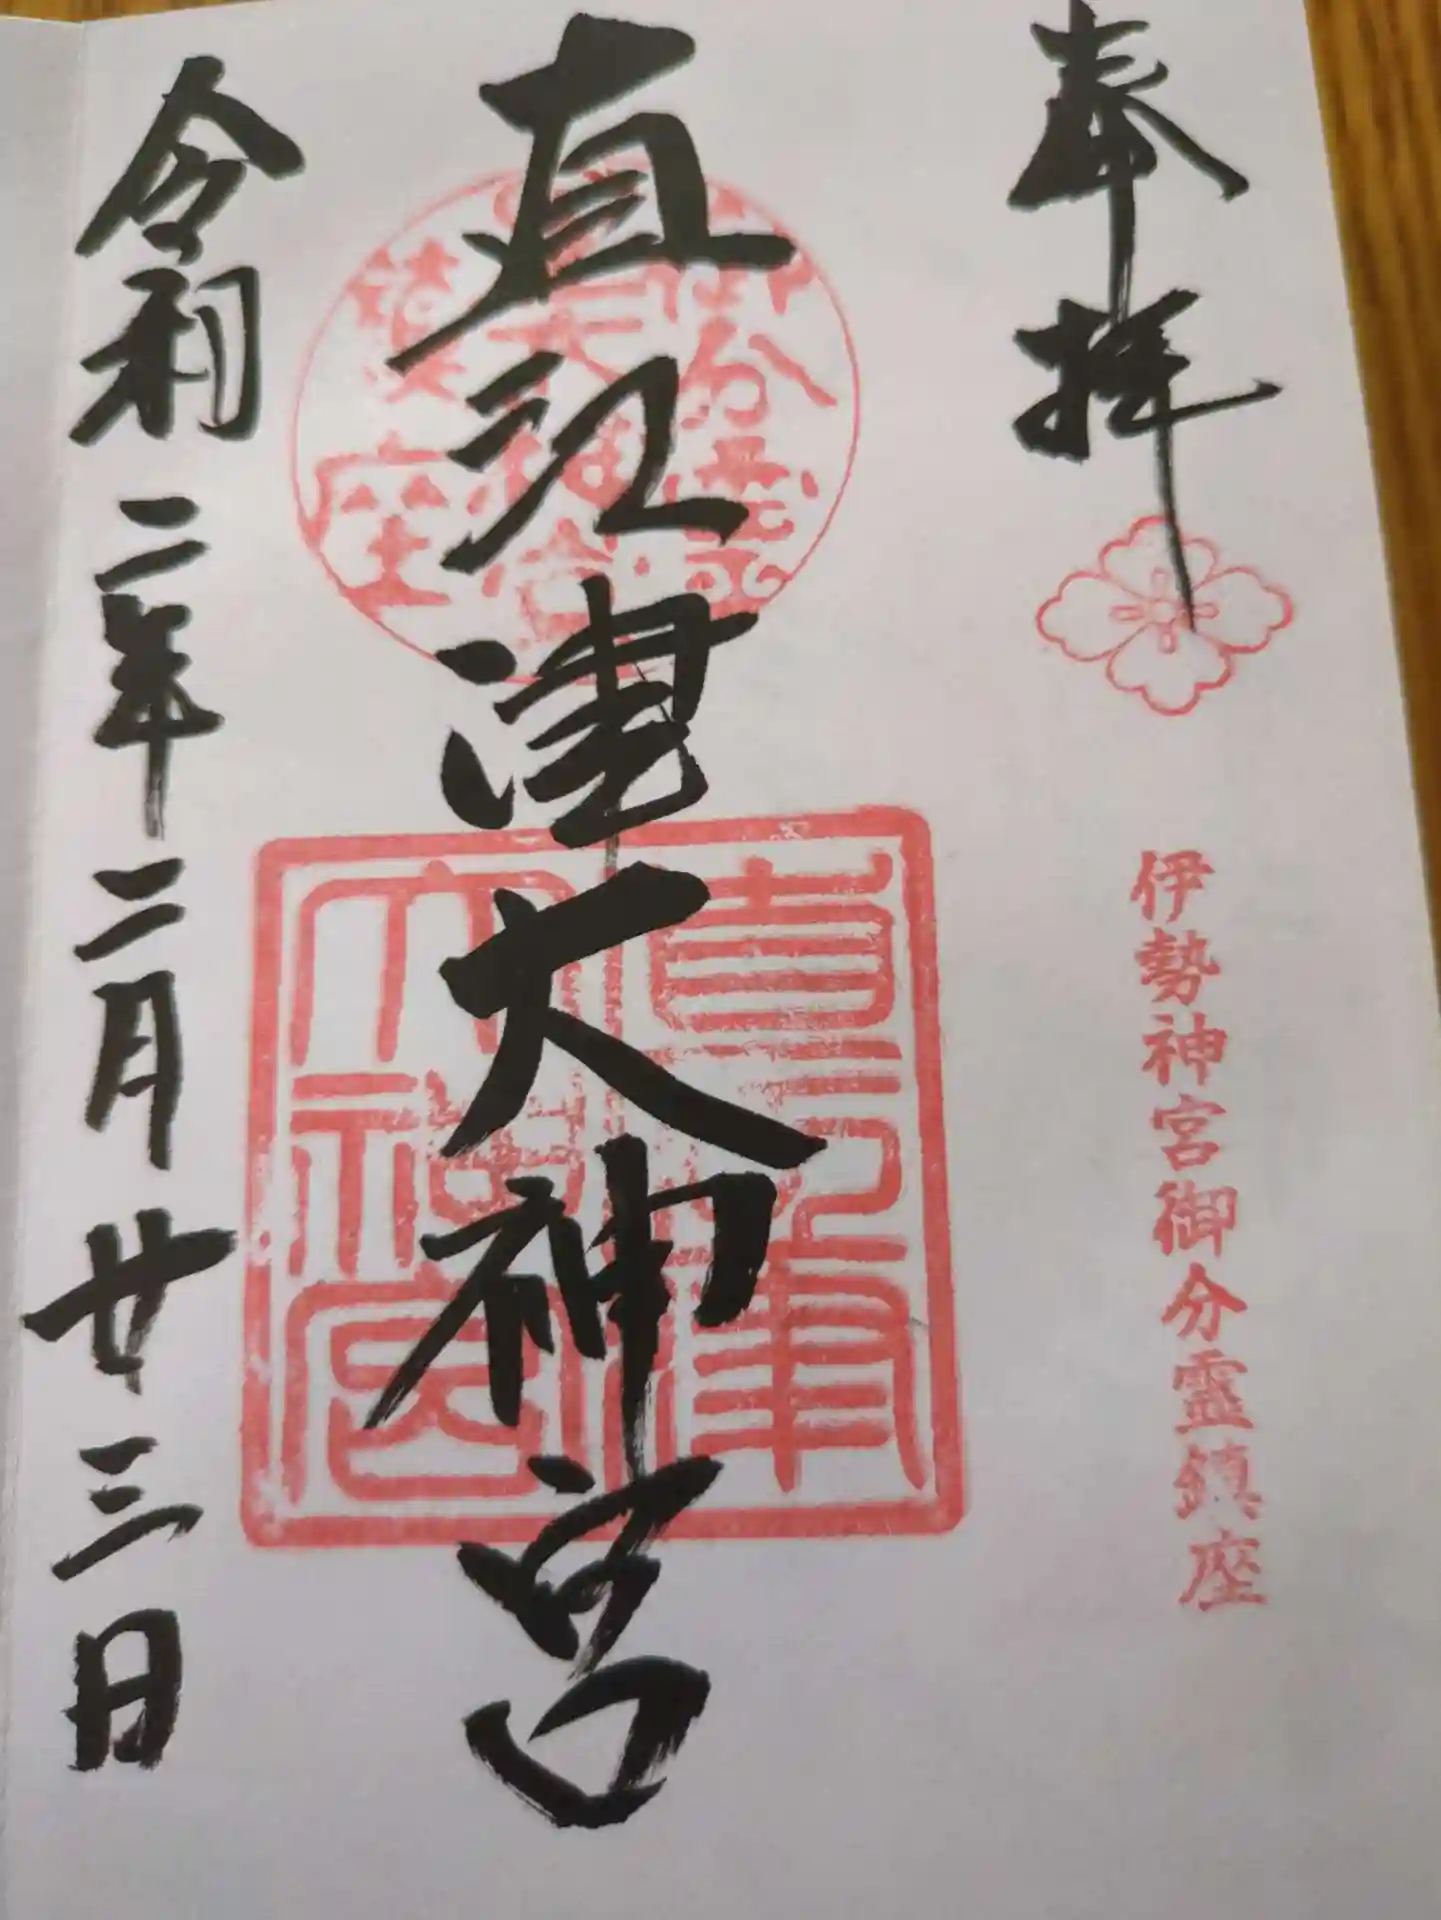 奉拝
伊勢神宮御分霊鎮座
直江津大神宮
直江津
大神宮
令和二年二月廿三日